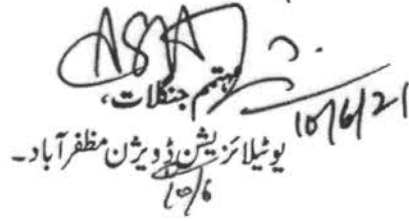 مہتمم جنگلات،
10/6/21
یوٹیلائزیشن ڈویژن مظفر آباد۔
10/6